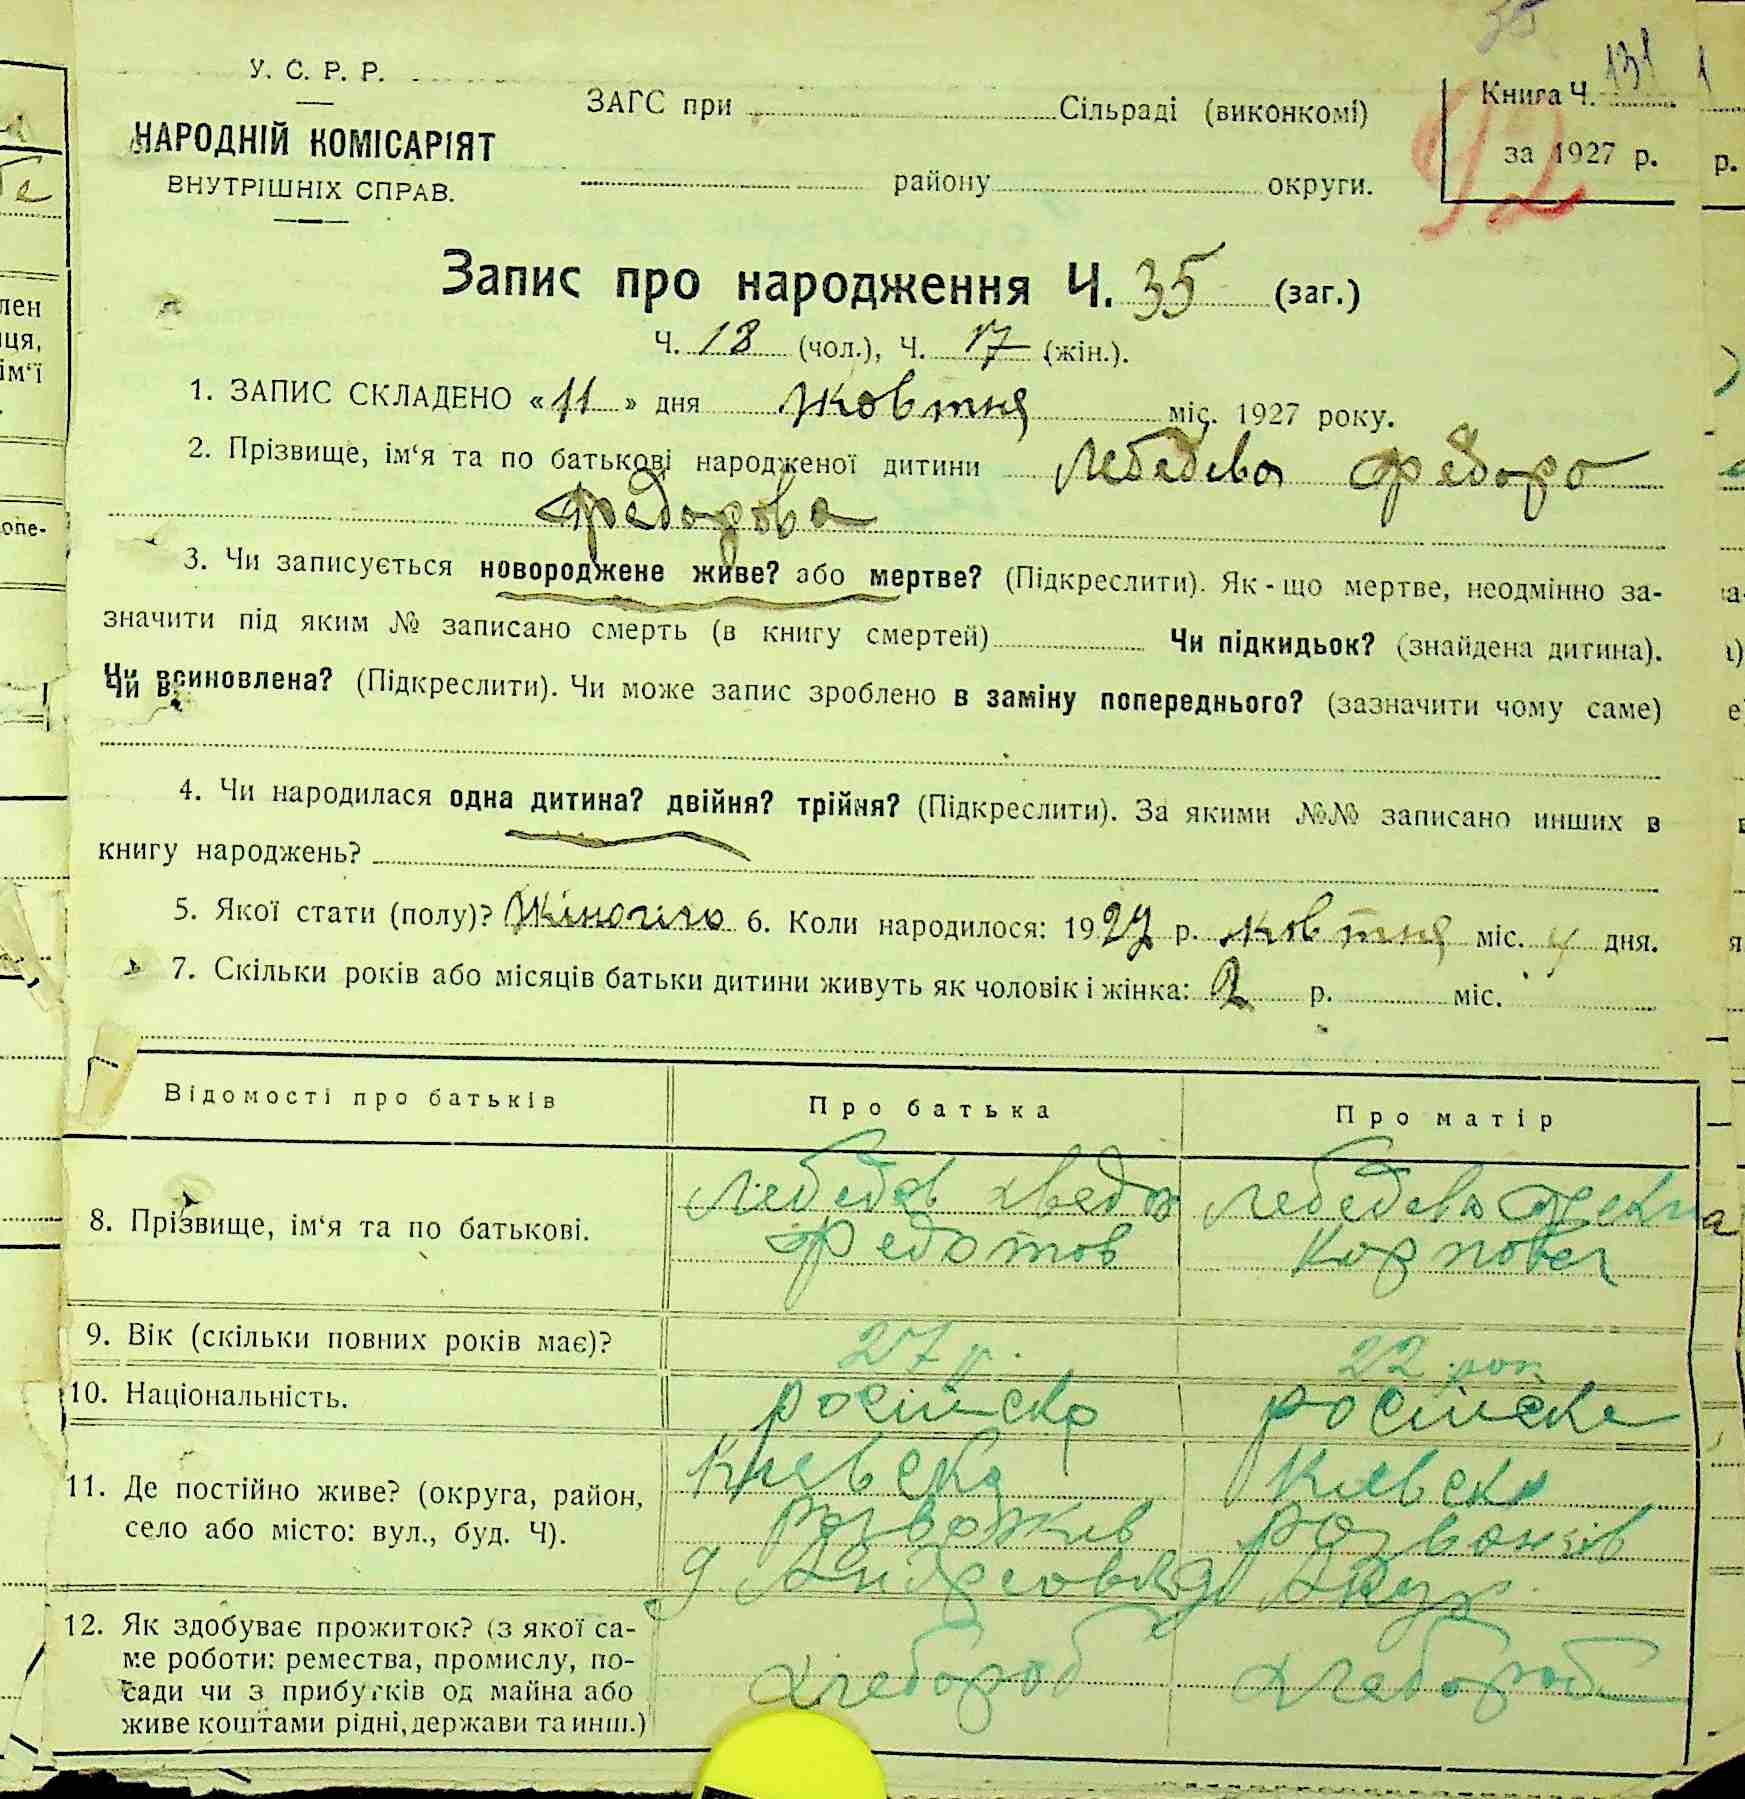 У. С. Р. Р.
НАРОДНІЙ КОМІСАРІЯТ
ВНУТРІШНІХ СПРАВ.
ЗАГС при Сільраді (виконкомі)
району округи.
Книга Ч. 131
за 1927 р.
92
Запис про народження Ч. 35 (заг.)
Ч. 18 (чол.), Ч. 17 (жін.).
1. ЗАПИС СКЛАДЕНО «11» дня жовтня міс. 1927 року.
2. Прізвище, ім‘я та по батькові народженої дитини Лебедева Федора
Федорова
3. Чи записується новороджене живе? або мертве? (Підкреслити). Як-що мертве, неодмінно за-
значити під яким № записано смерть (в книгу смертей) Чи підкидьок? (знайдена дитина).
Чи всиновлена? (Підкреслити). Чи може запис зроблено в заміну попереднього? (зазначити чому саме)
4. Чи народилася одна дитина? двійня? трійня? (Підкреслити). За якими №№ записано инших в
книгу народжень?
5. Якої стати (полу)? Жіночою 6. Коли народилося: 1927 р. жовтня міс. 4 дня.
7. Скільки років або місяців батьки дитини живуть як чоловік і жінка: 2 р. міс.
Відомості про батьків Про батька Про матір
8. Прізвище, ім‘я та по батькові.
Лебедев Хведор
Федотов
Лебедева Текна
Карпова
9. Вік (скільки повних років має)? 27 р. 22 рок
10. Національність. російска російска
11. Де постійно живе? (округа, район,
село або місто: вул., буд. Ч).
Київска
Розважів
Київска
Розважів
12. Як здобуває прожиток? (з якої са-
ме роботи: ремества, промислу, по-
сади чи з прибутків од майна або
живе коштами рідні, держави та инш.)
хлебороб хлебороб